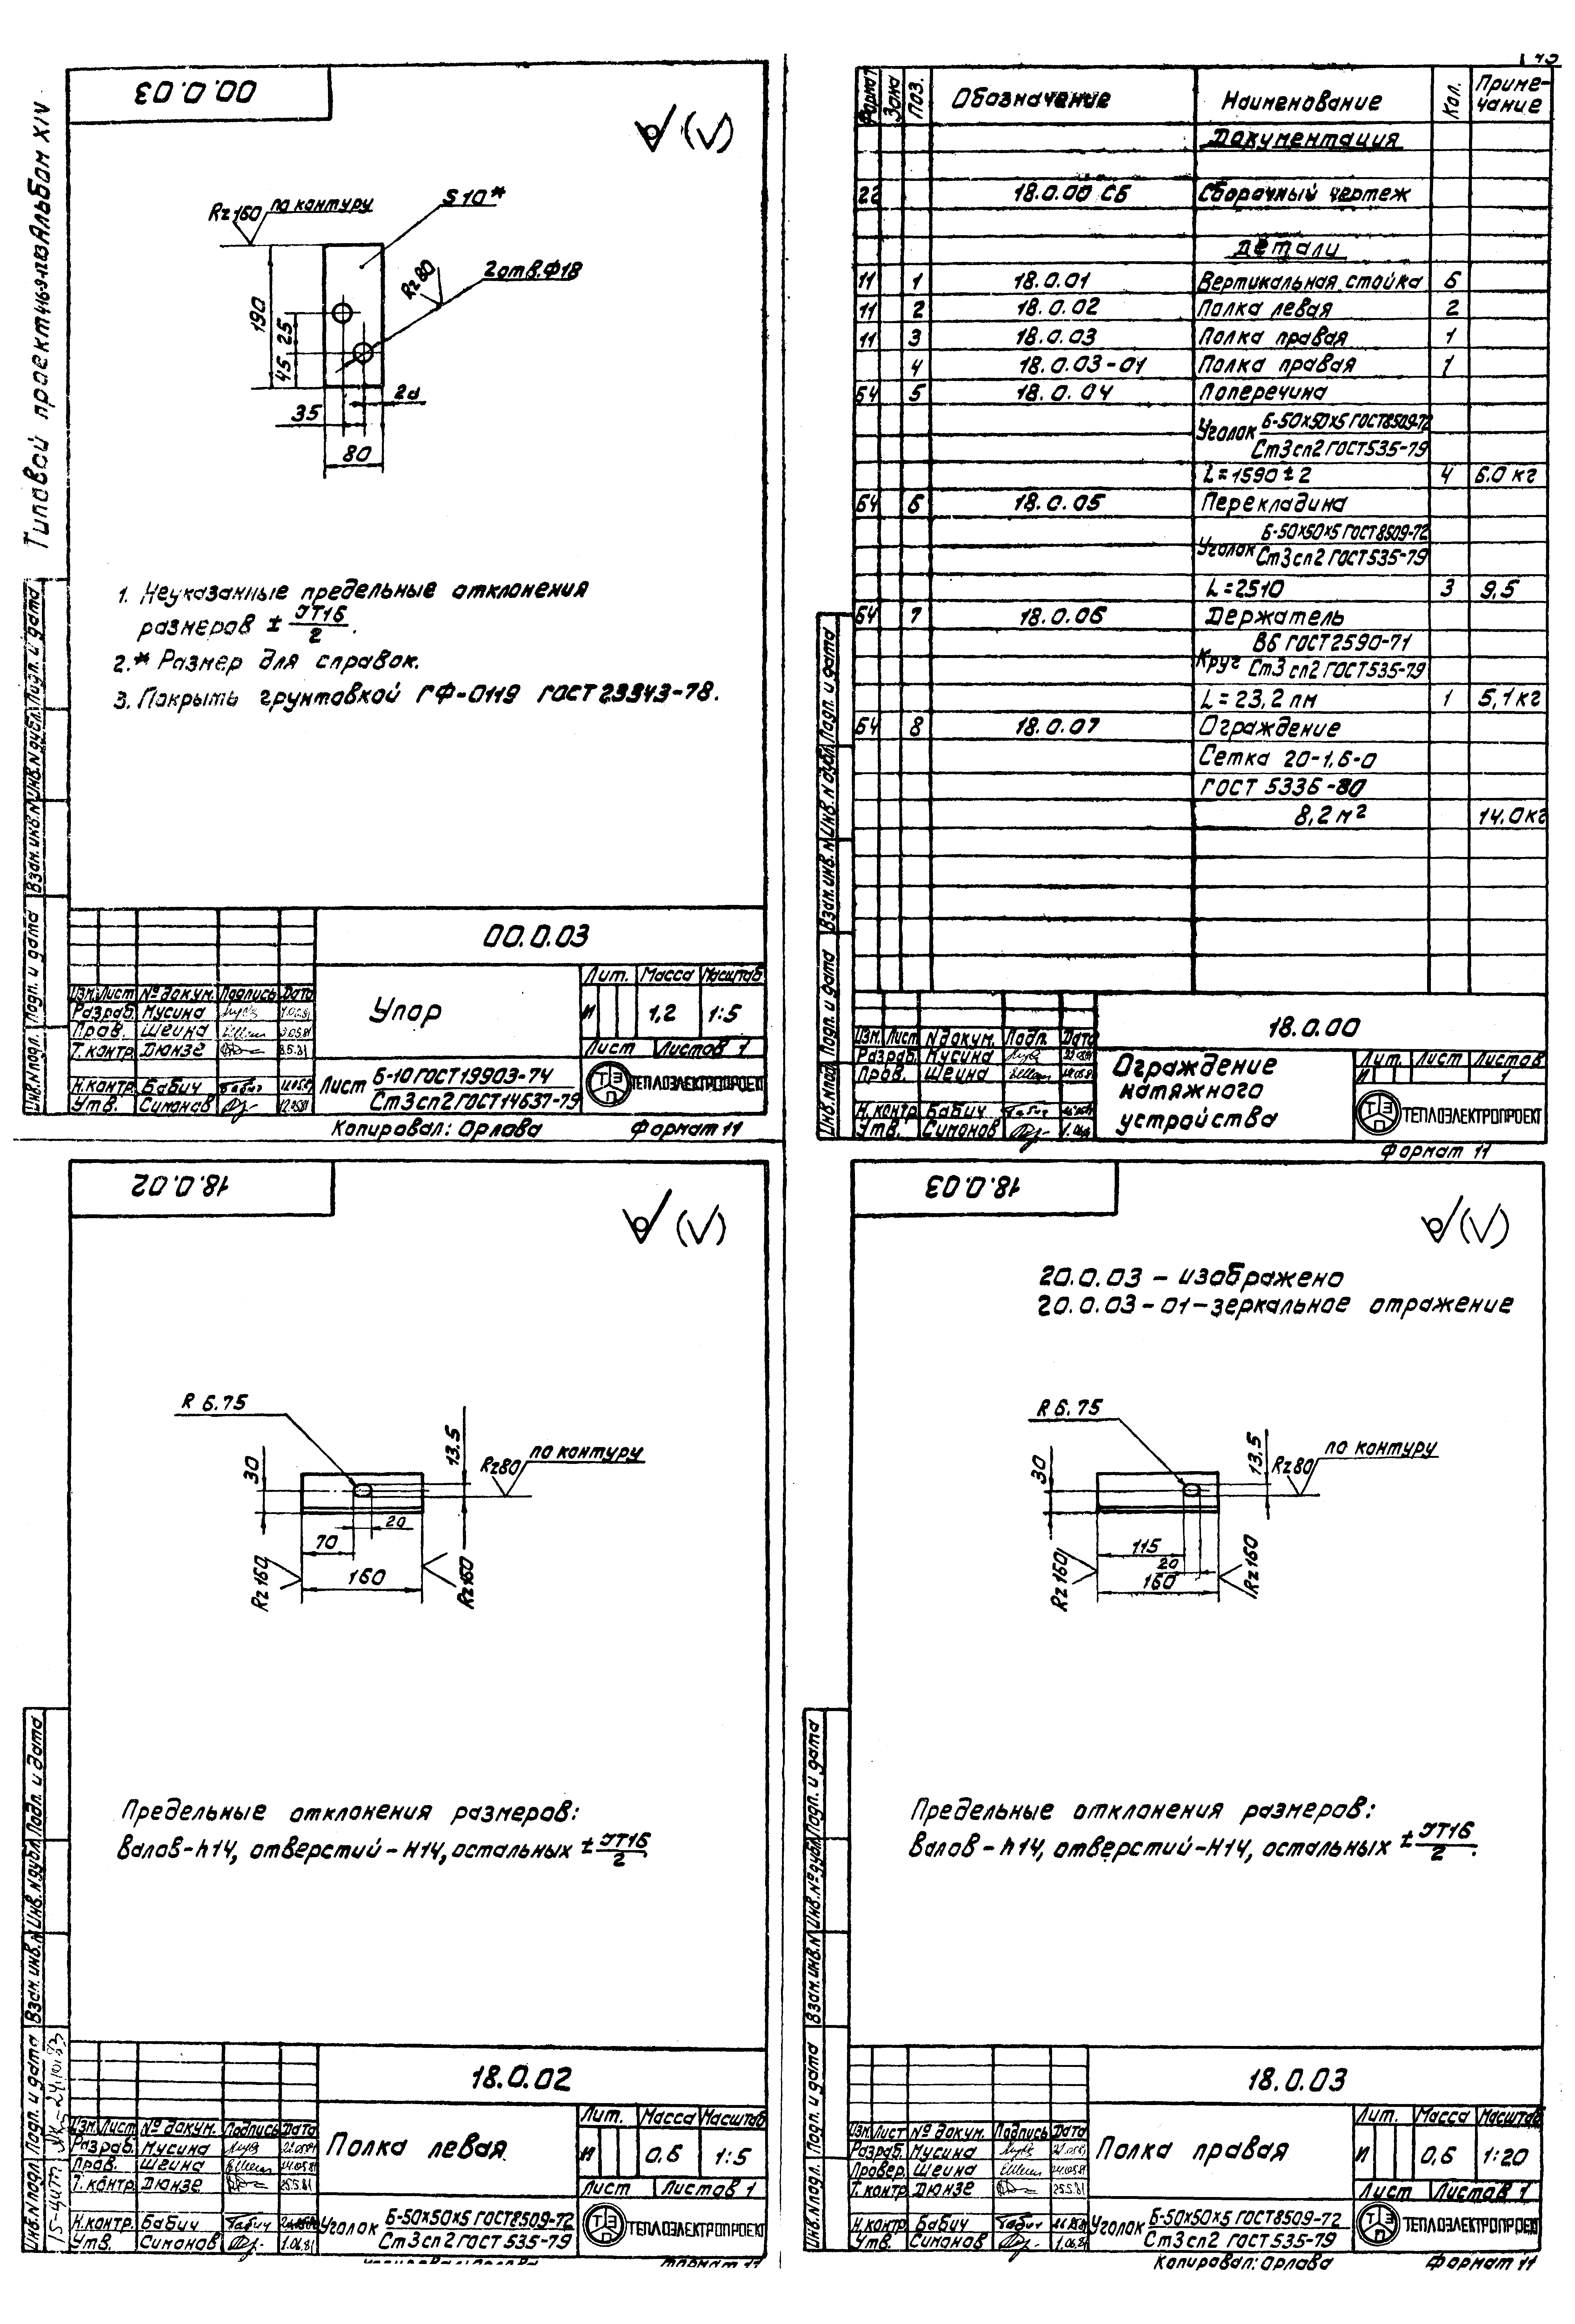 00.0.03
Типовой проект 416-9-12.83 Альбом XIV
Rz160 по контуру
S 10*
Rz80
2 отв. Ф18
190
25
45
35
20
80
1. Неуказанные предельные отклонения
размеров ± IT16/2.
2.* Размер для справок.
3. Покрыть грунтовкой ГФ-0119 ГОСТ 23343-78.
Инв.N подл. Подп. и дата Взам.инв.N Инв.N дубл. Подп. и дата
00.0.03
Упор
Лит. Масса Масштаб
И 1,2 1:5
Лист Листов 1
Изм. Лист № докум. Подпись Дата
Разраб. Мусина
Пров. Шеина
Т. контр. Дюнзе
Н. контр. Бабич
Утв. Симонов
Лист Б-10 ГОСТ 19903-74
Ст3сп2 ГОСТ 14637-79
ТЭП ТЕПЛОЭЛЕКТРОПРОЕКТ
Копировал: Орлова Формат 11
Формат Зона Поз. Обозначение Наименование Кол. Приме-
чание
Документация
22 18.0.00 СБ Сборочный чертеж
Детали
11 1 18.0.01 Вертикальная стойка 6
11 2 18.0.02 Полка левая 2
11 3 18.0.03 Полка правая 1
4 18.0.03-01 Полка правая 1
БЧ 5 18.0.04 Поперечина
Уголок Б-50х50х5 ГОСТ 8509-72
Ст3сп2 ГОСТ 535-79
L=1590±2 4 6.0 кг
БЧ 6 18.0.05 Перекладина
Уголок Б-50х50х5 ГОСТ 8509-72
Ст3сп2 ГОСТ 535-79
L=2510 3 9,5
БЧ 7 18.0.06 Держатель
Круг В6 ГОСТ 2590-71
Ст3сп2 ГОСТ 535-79
L=23,2 пм 1 5,1 кг
БЧ 8 18.0.07 Ограждение
Сетка 20-1,6-0
ГОСТ 5336-80
8,2 м² 14.0 кг
Инв.N подл. Подп. и дата Взам.инв.N Инв.N дубл. Подп. и дата
18.0.00
Изм. Лист N докум. Подп. Дата
Разраб. Мусина
Пров. Шеина
Н. контр. Бабич
Утв. Симонов
Ограждение
натяжного
устройства
Лит. Лист Листов
И 1
ТЭП ТЕПЛОЭЛЕКТРОПРОЕКТ
Формат 11
18.0.02
R 6.75
30
13.5
Rz80 по контуру
20
70
160
Rz160
Rz160
Предельные отклонения размеров:
валов-h14, отверстий-H14, остальных ± IT16/2
Инв.N подл. Подп. и дата Взам.инв.N Инв.N дубл. Подп. и дата
18.0.02
Полка левая
Лит. Масса Масштаб
И 0,6 1:5
Лист Листов 1
Изм. Лист № докум. Подпись Дата
Разраб. Мусина
Пров. Шеина
Т. контр. Дюнзе
Н. контр. Бабич
Утв. Симонов
Уголок Б-50х50х5 ГОСТ 8509-72
Ст3сп2 ГОСТ 535-79
ТЭП ТЕПЛОЭЛЕКТРОПРОЕКТ
18.0.03
20.0.03 - изображено
20.0.03-01-зеркальное отражение
R 6.75
30
13,5
Rz80 по контуру
115
20
160
Rz160
Rz160
Предельные отклонения размеров:
валов-h14, отверстий-H14, остальных ± IT16/2.
Инв.N подл. Подп. и дата Взам.инв.N Инв.№ дубл. Подп. и дата
18.0.03
Полка правая
Лит. Масса Масштаб
И 0,6 1:20
Лист Листов 1
Изм. Лист № докум. Подпись Дата
Разраб. Мусина
Провер. Шеина
Т. контр. Дюнзе
Н. контр. Бабич
Утв. Симонов
Уголок Б-50х50х5 ГОСТ 8509-72
Ст3сп2 ГОСТ 535-79
ТЭП ТЕПЛОЭЛЕКТРОПРОЕКТ
Копировал: Орлова Формат 11